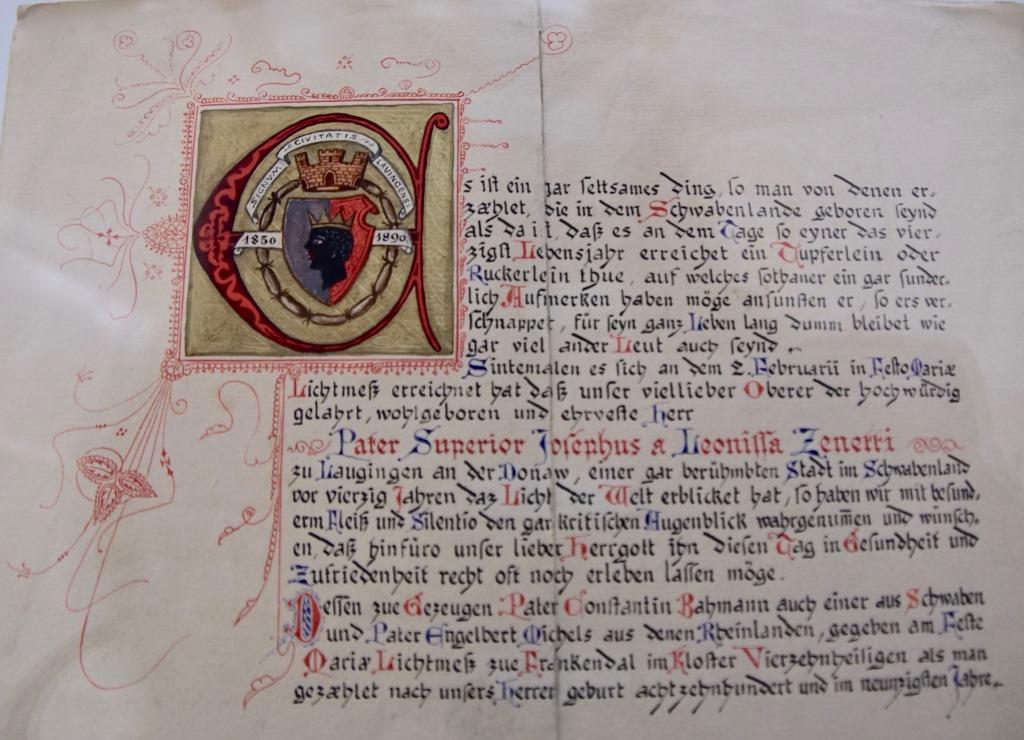 SIGNVM CIVITATIS LAVINGENSI
1850 1890
Es ist ein gar seltsames Ding, so man von denen er-
zæhlet, die in dem Schwabenlande geboren seynd
als da ist, daß es an dem Tage so eyner das vier-
zigst Lebensjahr erreichet ein Tupferlein oder
Ruckerlein thue, auf welches sothaner ein gar sunder-
lich Aufmerken haben möge ansunsten er, so ers ver-
schnappet, für seyn ganz Leben lang dumm bleibet wie
gar viel ander Leut auch seynd.
Sintemalen es sich an dem 2. Februarii in Festo Mariæ
Lichtmeß erreichnet hat daß unser viellieber Oberer der hochwürdig
gelahrt, wohlgeboren und ehrveste Herr
Pater Superior Josephus a Leonissa Zenetti
zu Laugingen an der Donaw, einer gar berühmbten Stadt im Schwabenland
vor vierzig Jahren daz Licht der Welt erblicket hat, so haben wir mit besund-
erm Fleiß und Silentio den gar kritischen Augenblick wahrgenum̄en und wünsch-
en, daß hinfüro unser lieber Herrgott ihn diesen Tag in Gesundheit und
Zufriedenheit recht oft noch erleben lassen möge.
Dessen zue Gezeugen Pater Constantin Bahmann auch einer aus Schwaben
und Pater Engelbert Michels aus denen Rheinlanden, gegeben am Feste
Mariæ Lichtmeß zue Frankendal im Kloster Vierzehnheiligen als man
gezæhlet nach unsers Herrer geburt achtzehnhundert und im neunzigsten Jahre.